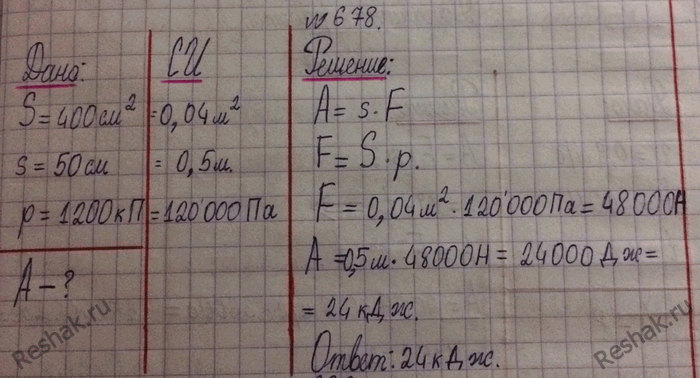 №678.
Дано:
S=400см²
s=50см
p=1200кП
A-?
СИ
=0,04м²
=0,5м.
=120'000Па
Решение:
A=s·F
F=S·p.
F=0,04м²·120'000Па=48000Н
A=0,5м·48000Н=24000Дж=
=24кДж.
Ответ:24кДж.
Reshak.ru
Reshak.ru